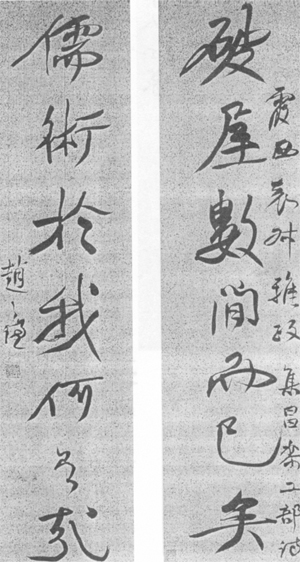 破屋數間而已矣
霞西表叔雅政 集昌黎工部詩
儒術於我何有哉
趙之謙